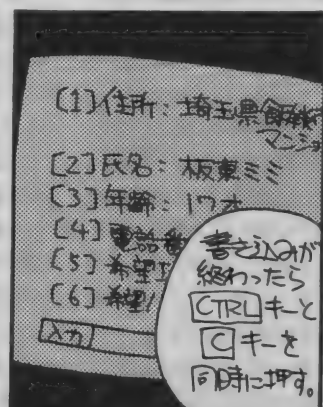 [1]住所：埼玉県飯能市
マンショ
[2]氏名：板東ミミ
[3]年齢：17才
[4]電話番
[5]希望I
[6]希望
入力
書き込みが
終わったら
CTRLキーと
Cキーを
同時に押す。